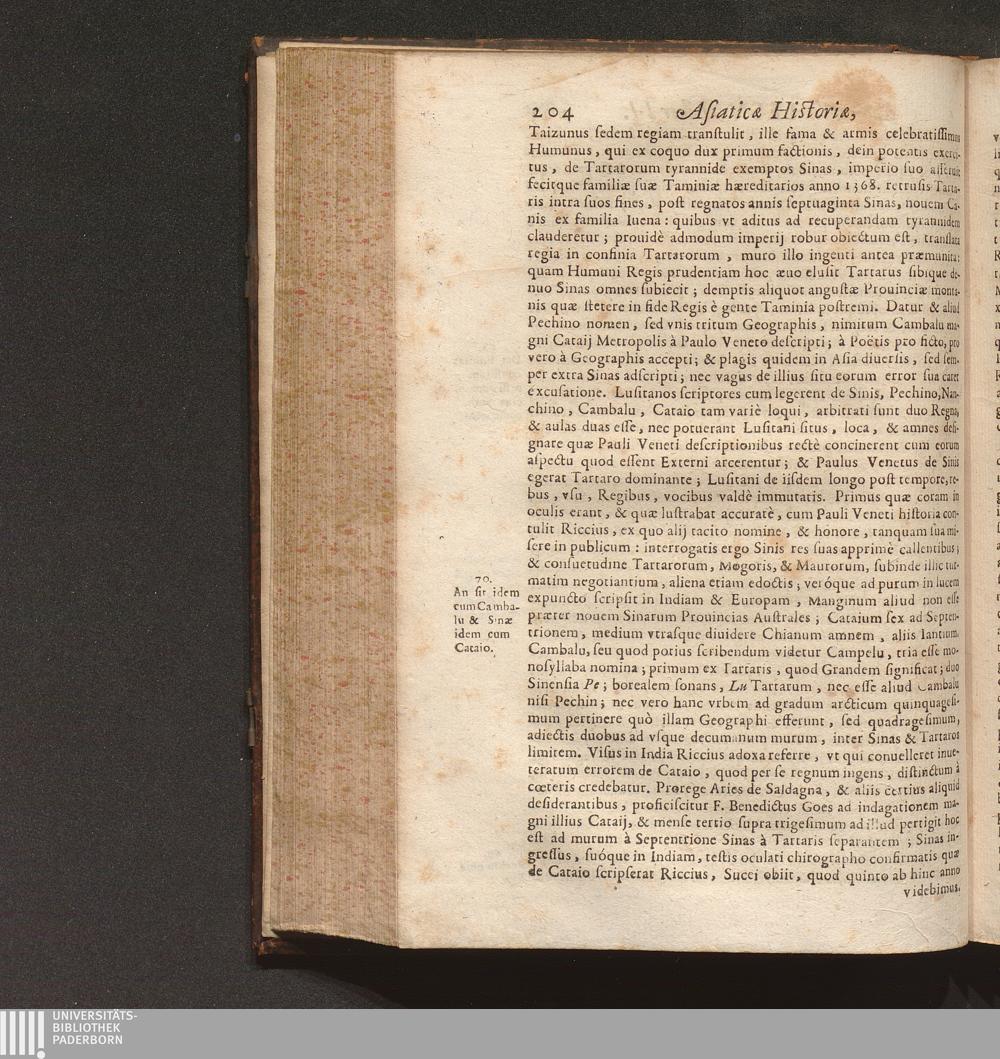 204 Asiaticæ Historiæ,
Taizunus ſedem regiam tranſtulit, ille fama & armis celebratiſſimus
Humunus, qui ex coquo dux primum factionis, dein potentis exerci-
tus, de Tartarorum tyrannide exemptos Sinas, imperio ſuo aſſeruit
fecitque familiæ ſuæ Taminiæ hæreditarios anno 1368. retruſis Tarta-
ris intra ſuos fines, poſt regnatos annis ſeptuaginta Sinas, nouem Ca-
nis ex familia Iuena: quibus vt aditus ad recuperandam tyrannidem
clauderetur; prouidè admodum imperij robur obiectum eſt, tranſlata
regia in confinia Tartarorum, muro illo ingenti antea præmunita:
quam Humuni Regis prudentiam hoc æuo eluſit Tartarus ſibique de-
nuo Sinas omnes ſubiecit; demptis aliquot anguſtæ Prouinciæ monta-
nis quæ ſtetere in fide Regis è gente Taminia poſtremi. Datur & aliud
Pechino nomen, ſed vnis tritum Geographis, nimirum Cambalu ma-
gni Cataij Metropolis à Paulo Veneto deſcripti; à Poëtis pro ficto, pro
vero à Geographis accepti; & plagis quidem in Aſia diuerſis, ſed ſem-
per extra Sinas adſcripti; nec vagus de illius ſitu eorum error ſua caret
excuſatione. Luſitanos ſcriptores cum legerent de Sinis, Pechino, Nan-
chino, Cambalu, Cataio tam variè loqui, arbitrati ſunt duo Regna,
& aulas duas eſſe, nec potuerant Luſitani ſitus, loca, & amnes deſi-
gnare quæ Pauli Veneti deſcriptionibus rectè concinerent cum eorum
aſpectu quod eſſent Externi arcerentur; & Paulus Venetus de Sinis
egerat Tartaro dominante; Luſitani de iiſdem longo poſt tempore, re-
bus, vſu, Regibus, vocibus valdè immutatis. Primus quæ coram in
oculis erant, & quæ luſtrabat accuratè, cum Pauli Veneti hiſtoria con-
tulit Riccius, ex quo alij tacito nomine, & honore, tanquam ſua mi-
ſere in publicum: interrogatis ergo Sinis res ſuas apprimè callentibus;
& conſuetudine Tartarorum, Mogoris, & Maurorum, ſubinde illic tur-
matim negotiantium, aliena etiam edoctis; veróque ad purum in lucem
expuncto ſcripſit in Indiam & Europam, Manginum aliud non eſſe
præter nouem Sinarum Prouincias Auſtrales; Cataium ſex ad Septen-
trionem, medium vtraſque diuidere Chianum amnem, aliis Iantium,
Cambalu, ſeu quod potius ſcribendum videtur Campelu, tria eſſe mo-
noſyllaba nomina; primum ex Tartaris, quod Grandem ſignificat; duo
Sinenſia Pe; borealem ſonans, Lu Tartarum, nec eſſe aliud Cambalu
niſi Pechin; nec vero hanc vrbem ad gradum arcticum quinquageſi-
mum pertinere quò illam Geographi efferunt, ſed quadrageſimum,
adiectis duobus ad vſque decumanum murum, inter Sinas & Tartaros
limitem. Viſus in India Riccius adoxa referre, vt qui conuelleret inue-
teratum errorem de Cataio, quod per ſe regnum ingens, diſtinctum à
cœteris credebatur. Prorege Aries de Saldagna, & aliis certius aliquid
deſiderantibus, proficiſcitur F. Benedictus Goes ad indagationem ma-
gni illius Cataij, & menſe tertio ſupra trigeſimum ad illud pertigit hoc
eſt ad murum à Septentrione Sinas à Tartaris ſeparantem; Sinas in-
greſſus, ſuóque in Indiam, teſtis oculati chirographo confirmatis quæ
de Cataio ſcripſerat Riccius, Succi obiit, quod quinto ab hinc anno
videbimus.
70.
An ſit idem
cum Camba-
lu & Sinæ
idem cum
Cataio.
UNIVERSITÄTS-
BIBLIOTHEK
PADERBORN